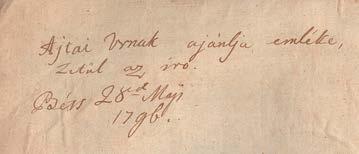 Ajtai Urnak ajánlja emléke,
zetűl az iro.
Béss 28ᵈ Maji
1796.